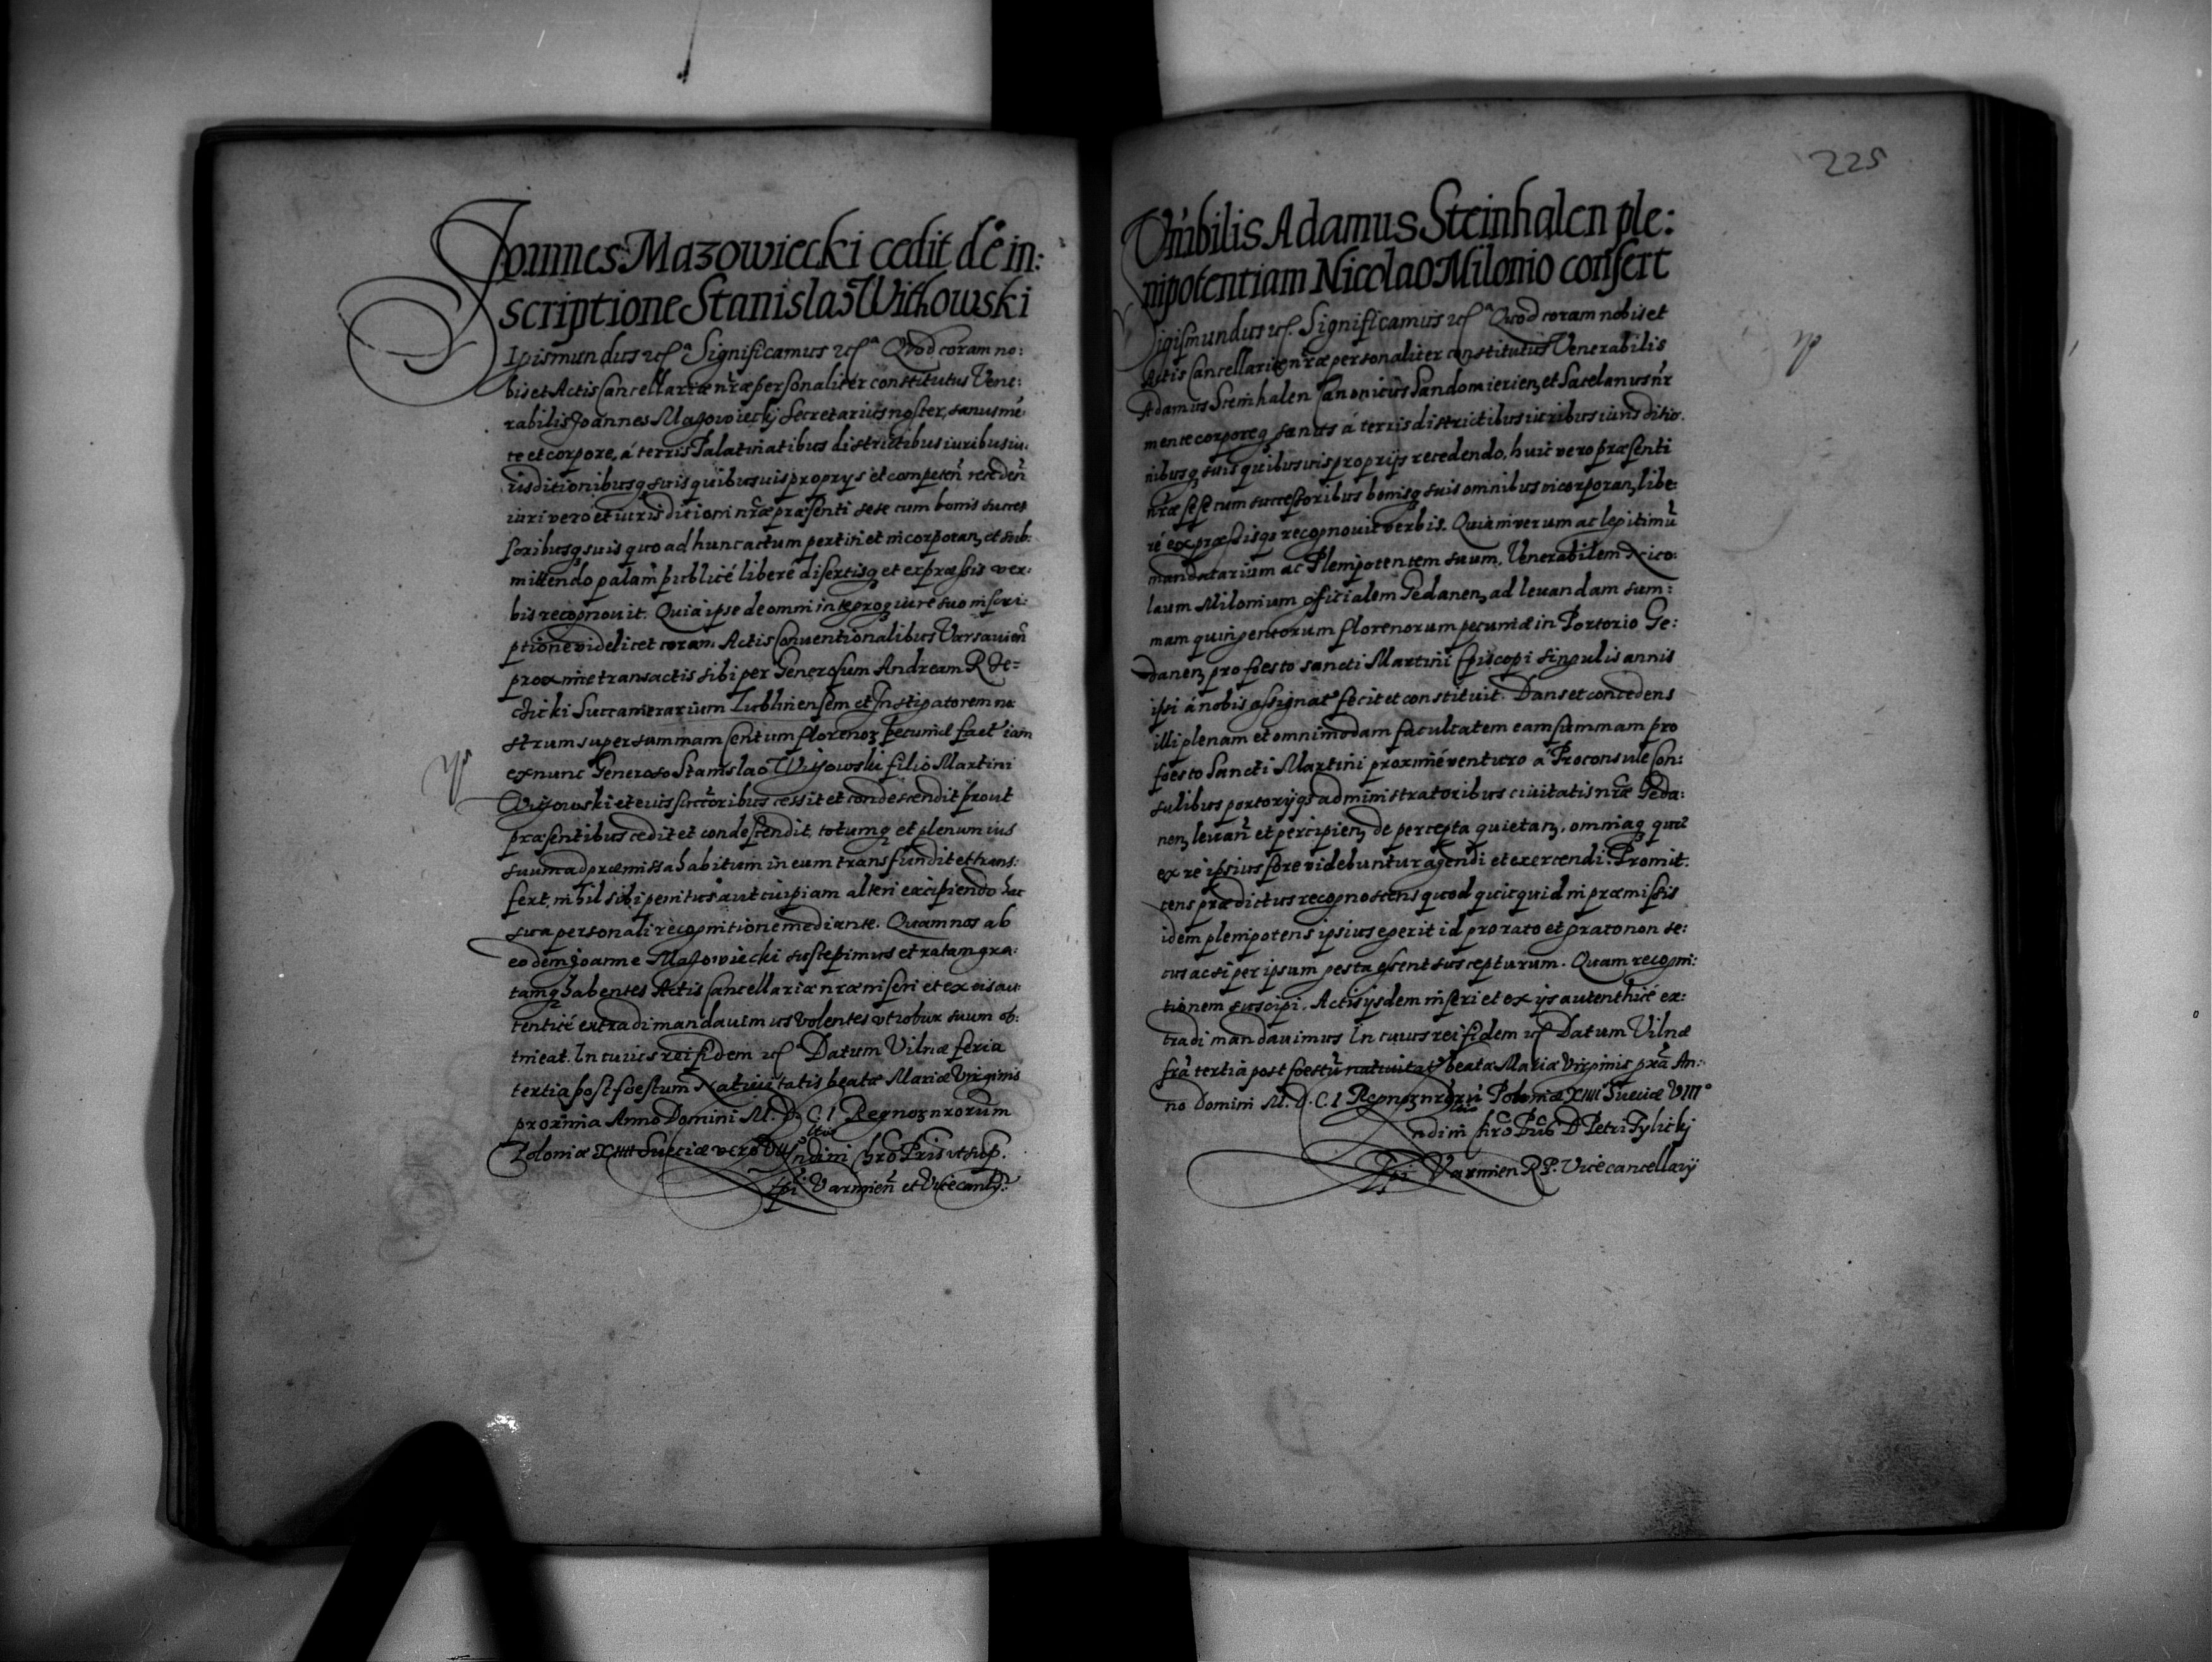 Joannes Mazowiecki cedit de in:
scriptione Stanislao Witkowski
Sigismundus etc. Significamus etc. Quod coram no:
bis et Actis Cancellariæ nr̃æ personaliter constitutus Vene:
rabilis Joannes Mazowieckj Secretarius noster, sanus mẽ
te et corpore, á terris Palatinatibus districtibus iuribus iu:
risditionibusq suis quibusuis proprys et competeñ recedeñ
iuri vero et iurisditioni nr̃æ præsenti sese cum bonis succes
soribusq suis quo ad hunc actum pertiñ et incorporan, et sub:
mittendo palam publicé liberé disertisq et expræssis ver:
bis recognouit. Quia ipse de omni integroq iure suo inscri:
ptione videlicet coram Actis Conuentionalibus Varsauieñ
proxime transactis sibi per Generosum Andream Rze:
czicki Succamerarium Lublinensem et Instigatorem no
strum super summam Centum florenoꝝ pecuniæ fact iam
ex nunc Generoso Stanislao Witowski filio Martini
Witowski et eius succoribus cessit et condescendit prout
præsentibus cedit et condescendit, totumq et plenum ius
suum ad præmissa habitum in eum transfundit et trans:
fert, nihil sibi penitus aut cuipiam alteri excipiendo hac
sua personali recognitione mediante. Quam nos ab
eodem Joanne Mazowiecki suscepimus et ratam gra:
tamq habentes Actis Cancellariæ nræ inseri et ex eis au:
tenticé extradi mandauimus volentes vt robur suum ob:
tineat. In cuius rei fidem etc. Datum Vilnæ feria
tertia post foestum Natiuitatis beatæ Mariæ Virginis
proxima Anno Domini M. D. C. I. Regnoꝝ nrorum
Poloniæ XIIII Sueciæ vero VIII
Varmieñ et Vicecanlrj.
225
Vn̄bilis Adamus Steinhalen ple:
nipotentiam Nicolao Milonio confert
Sigismundus etc. Significamus etc. Quod coram nobis et
Actis Cancellariæ nr̃æ personaliter constitutus Venerabilis
Adamus Steinhalen Canonicus Sandomierien, et Sacelanus nr̃
mente corporeq sanus á terris districtibus iuribus iurisditio:
nibusq suis quibusuis proprijs recedendo, huic vero præsenti
nr̃æ sese cum successoribus bonisq suis omnibus incorporan, libe:
ré expræssisqs recognouit verbis. Quia in verum ac legitimũ
mandatarium ac Plenipotentem suum, Venerabilem Nico:
laum Milonium officialem Gedanen, ad leuandam sum:
mam quingentorum florenorum pecuniæ in Portorio Ge:
danen, pro foesto sancti Martini Episcopi singulis annis
ipsi à nobis assignat fecit et constituit. Dans et concedens
illi plenam et omnimodam facultatem eam summam pro
foesto Sancti Martini proximé venturo á Proconsule Con:
sulibus portorijqs administratoribus ciuitatis nræ Geda:
nen, leuañ et percipien, de percepta quietan, omniaq quæ
ex re ipsius fore videbuntur agendi et exercendi. Promit:
tens prædictus recognoscens quod quicquid in præmissis
idem plenipotens ipsius egerit id pro rato et grato non se:
cus ac si per ipsum gesta essent suscepturum. Quam recogni:
tionem suscipi, Actis ijsdem inseri et ex ijs autenthicé ex:
tradi mandauimus In cuius rei fidem etc. Datum Vilnæ
fra tertia post foestũ natiuitat beatæ Mariæ Virginis prã An:
no Domini M. D. C. I Regnoꝝ nrorũ Poloniæ XIIII Sueciæ VIII°
D Petri Tylickj
Epi Varmien R P. Vicecancellarij